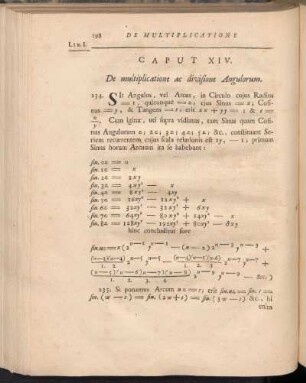 198 DE MULTIPLICATIONE
LIB. I.
CAPUT XIV.
De multiplicatione ac divisione Angulorum.
234. SIt Angulus, vel Arcus, in Circulo cujus Radius
= 1, quicunque = z; ejus Sinus = x; Cosi-
nus = y, & Tangens = t; erit xx + yy = 1 & t =
x/y. Cum igitur, uti supra vidimus, tam Sinus quam Cosi-
nus Angulorum z; 2z; 3z; 4z; 5z; &c. constituant Se-
riem recurrentem, cujus scala relationis est 2y, — 1; primum
Sinus horum Arcuum ita se habebunt:
sin. 0z = 0
sin. 1z = x
sin. 2z = 2xy
sin. 3z = 4xy² — x
sin. 4z = 8xy³ — 4xy
sin. 5z = 16xy⁴ — 12xy² + x
sin. 6z = 32xy⁵ — 32xy³ + 6xy
sin. 7z = 64xy⁶ — 80xy⁴ + 24xy² — x
sin. 8z = 128xy⁷ — 192xy⁵ + 80xy³ — 8xy
hinc concluditur fore
sin. nz = x(2ⁿ⁻¹yⁿ⁻¹ — (n—2)2ⁿ⁻³yⁿ⁻³ +
(n—3)(n—4)/1. 2 2ⁿ⁻⁵yⁿ⁻⁵ — (n—4)(n—5)(n—6)/1. 2. 3 2ⁿ⁻⁷yⁿ⁻⁷ +
(n—5)(n—6)(n—7)(n—8)/1. 2. 3. 4 2ⁿ⁻⁹yⁿ⁻⁹ — &c.)
235. Si ponamus Arcum nz = s; erit sin. nz = sin. s =
sin. (π — s) = sin. (2π + s) = sin. (3π — s) &c. hi
enim